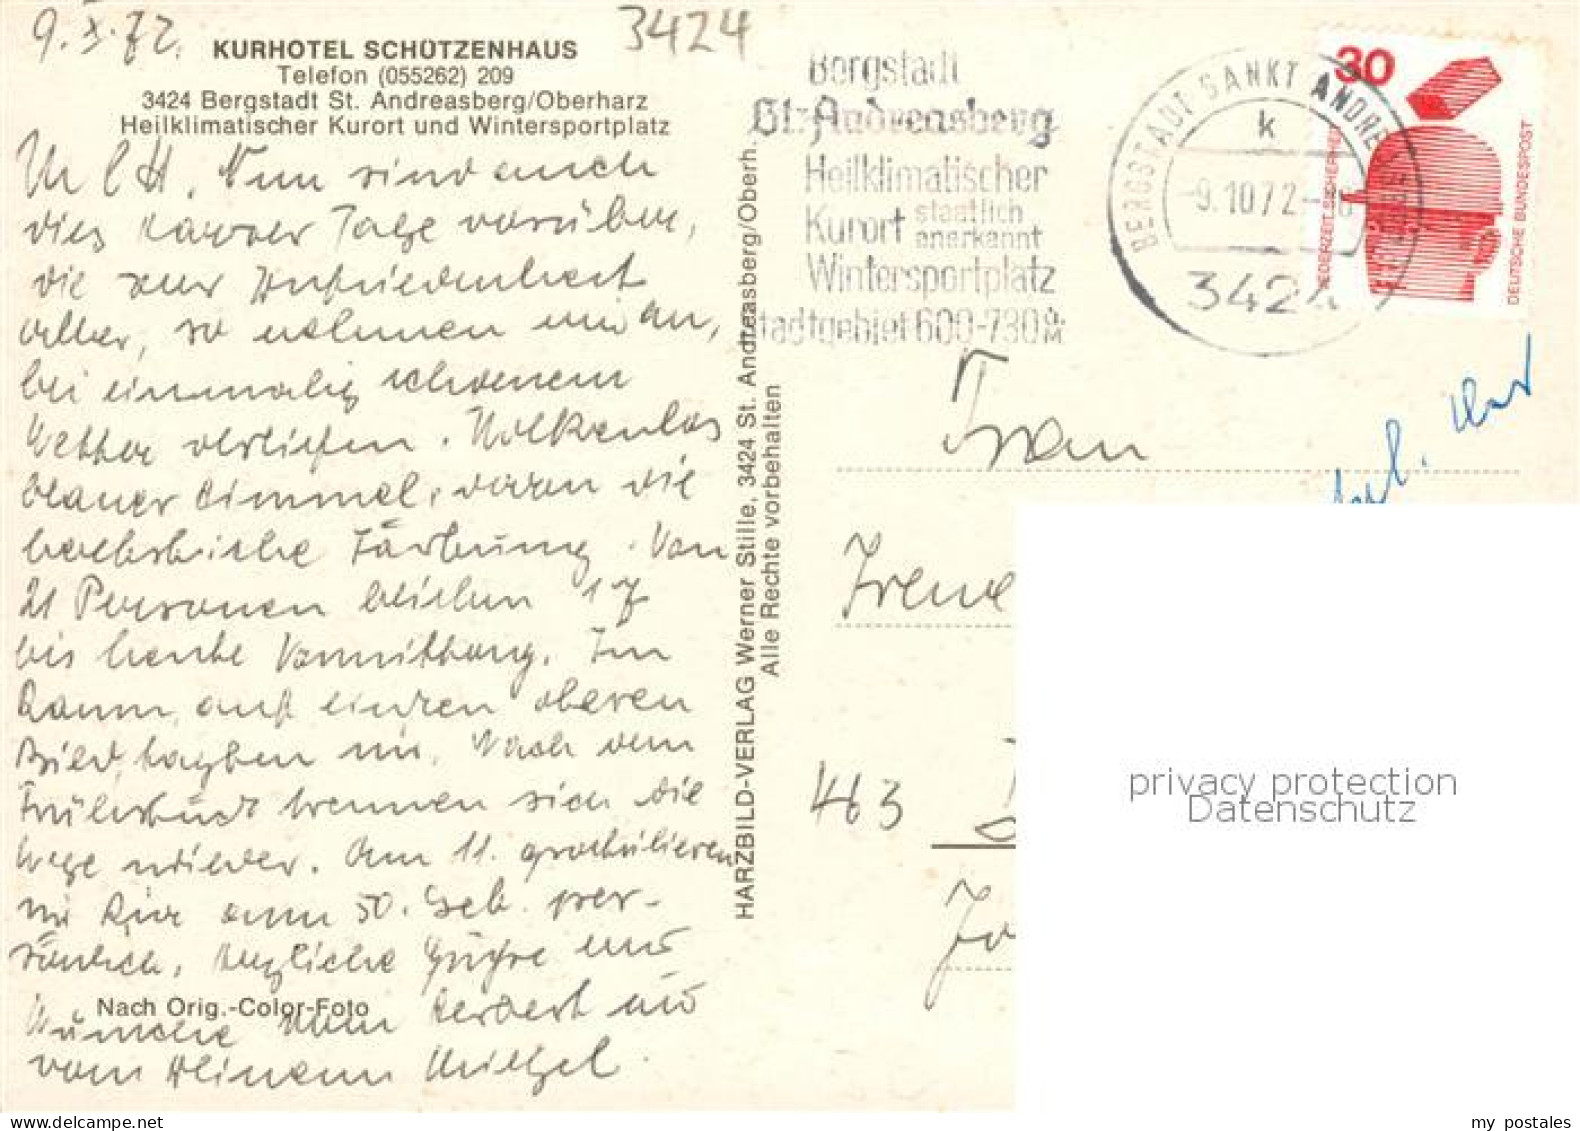 9.X.72.
3424
KURHOTEL SCHÜTZENHAUS
Telefon (055262) 209
3424 Bergstadt St. Andreasberg/Oberharz
Heilklimatischer Kurort und Wintersportplatz
Nun sind auch
Tage vorüber,
die zur Zufriedenheit
aller, so nehmen wir an,
bei einmalig schoenem
Wetter verliefen. Wolkenlos
blauer Himmel, daran die
herbstliche Färbung. Von
21 Personen blieben 17
bis heute Vormittag. Im
Raum, auf oberen
Bild, tagten wir. Nach dem
Frühstück trennen sich die
Wege wieder. Am 11. gratulieren
wir Dir zum 50. Geb. per-
sönlich. Herzliche Grüße und
Wünsche vom Herbert und
vom kleinen
Nach Orig.-Color-Foto
HARZBILD-VERLAG Werner Stille, 3424 St. Andreasberg/Oberh.
Alle Rechte vorbehalten
Bergstadt
St. Andreasberg
Heilklimatischer
Kurort staatlich anerkannt
Wintersportplatz
Stadtgebiet 600-730
BERGSTADT SANKT ANDREASBERG
k
-9.10.72.-
3424
30
JEDERZEIT SICHERHEIT
DEUTSCHE BUNDESPOST
Frau
Irene
463
privacy protection
Datenschutz
www.delcampe.net
my postales